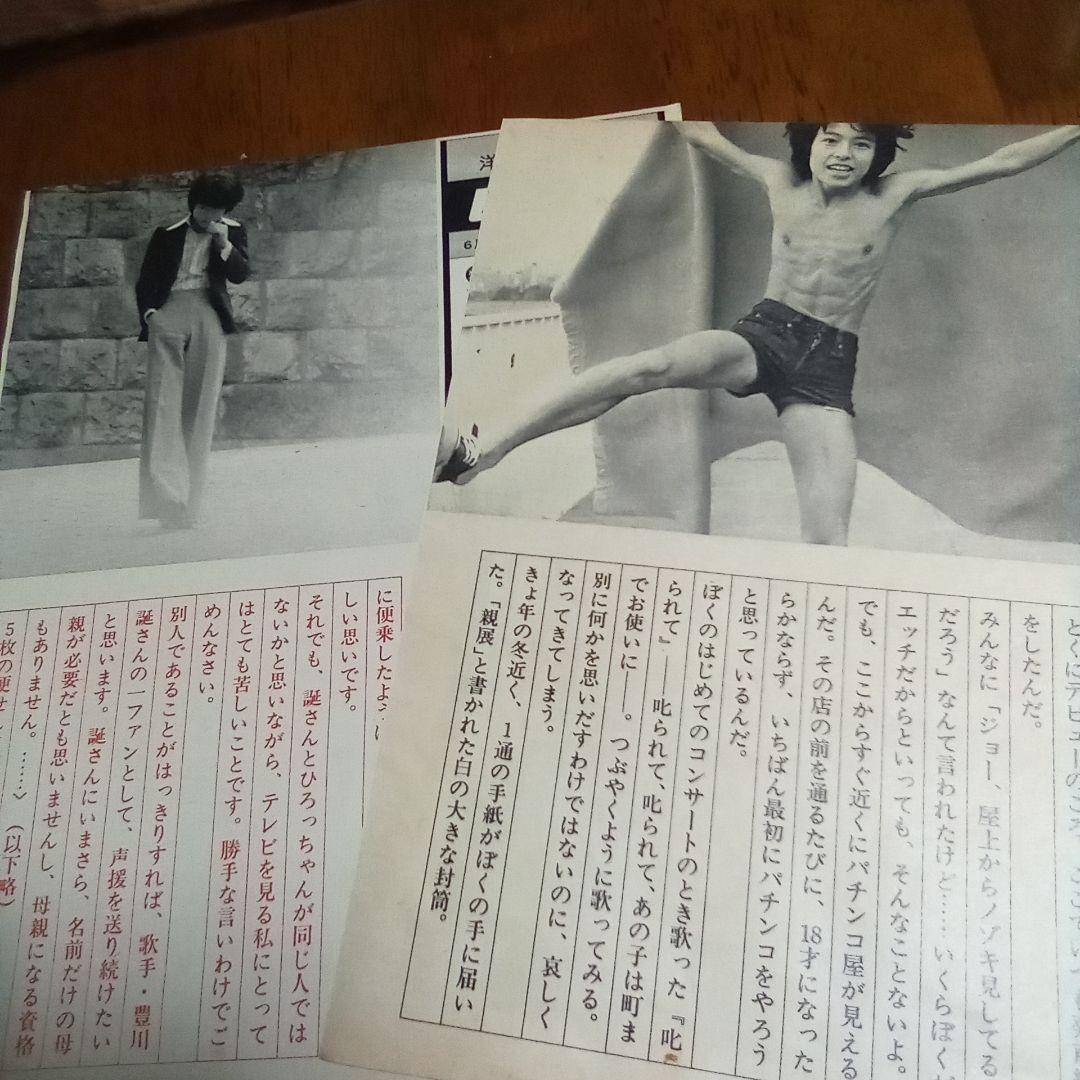 とくにデビューのころ、ここでいい
をしたんだ。
みんなに「ジョー、屋上からノゾキ見してる
だろう」なんて言われたけど……いくらぼくが
エッチだからといっても、そんなことないよ。
でも、ここからすぐ近くにパチンコ屋が見える
んだ。その店の前を通るたびに、18才になった
らかならず、いちばん最初にパチンコをやろう
と思っているんだ。
ぼくのはじめてのコンサートのとき歌った『叱
られて』――叱られて、叱られて、あの子は町ま
でお使いに――。つぶやくように歌ってみる。
別に何かを思いだすわけではないのに、哀しく
なってきてしまう。
きょ年の冬近く、1通の手紙がぼくの手に届い
た。「親展」と書かれた白の大きな封筒。
洋
6
に便乗したよう
しい思いです。
それでも、誕さんとひろっちゃんが同じ人では
ないかと思いながら、テレビを見る私にとって
はとても苦しいことです。勝手な言いわけでご
めんなさい。
別人であることがはっきりすれば、歌手・豊川
誕さんの一ファンとして、声援を送り続けたい
と思います。誕さんにいまさら、名前だけの母
親が必要だとも思いませんし、母親になる資格
もありません。……〉（以下略）
5枚の便せん